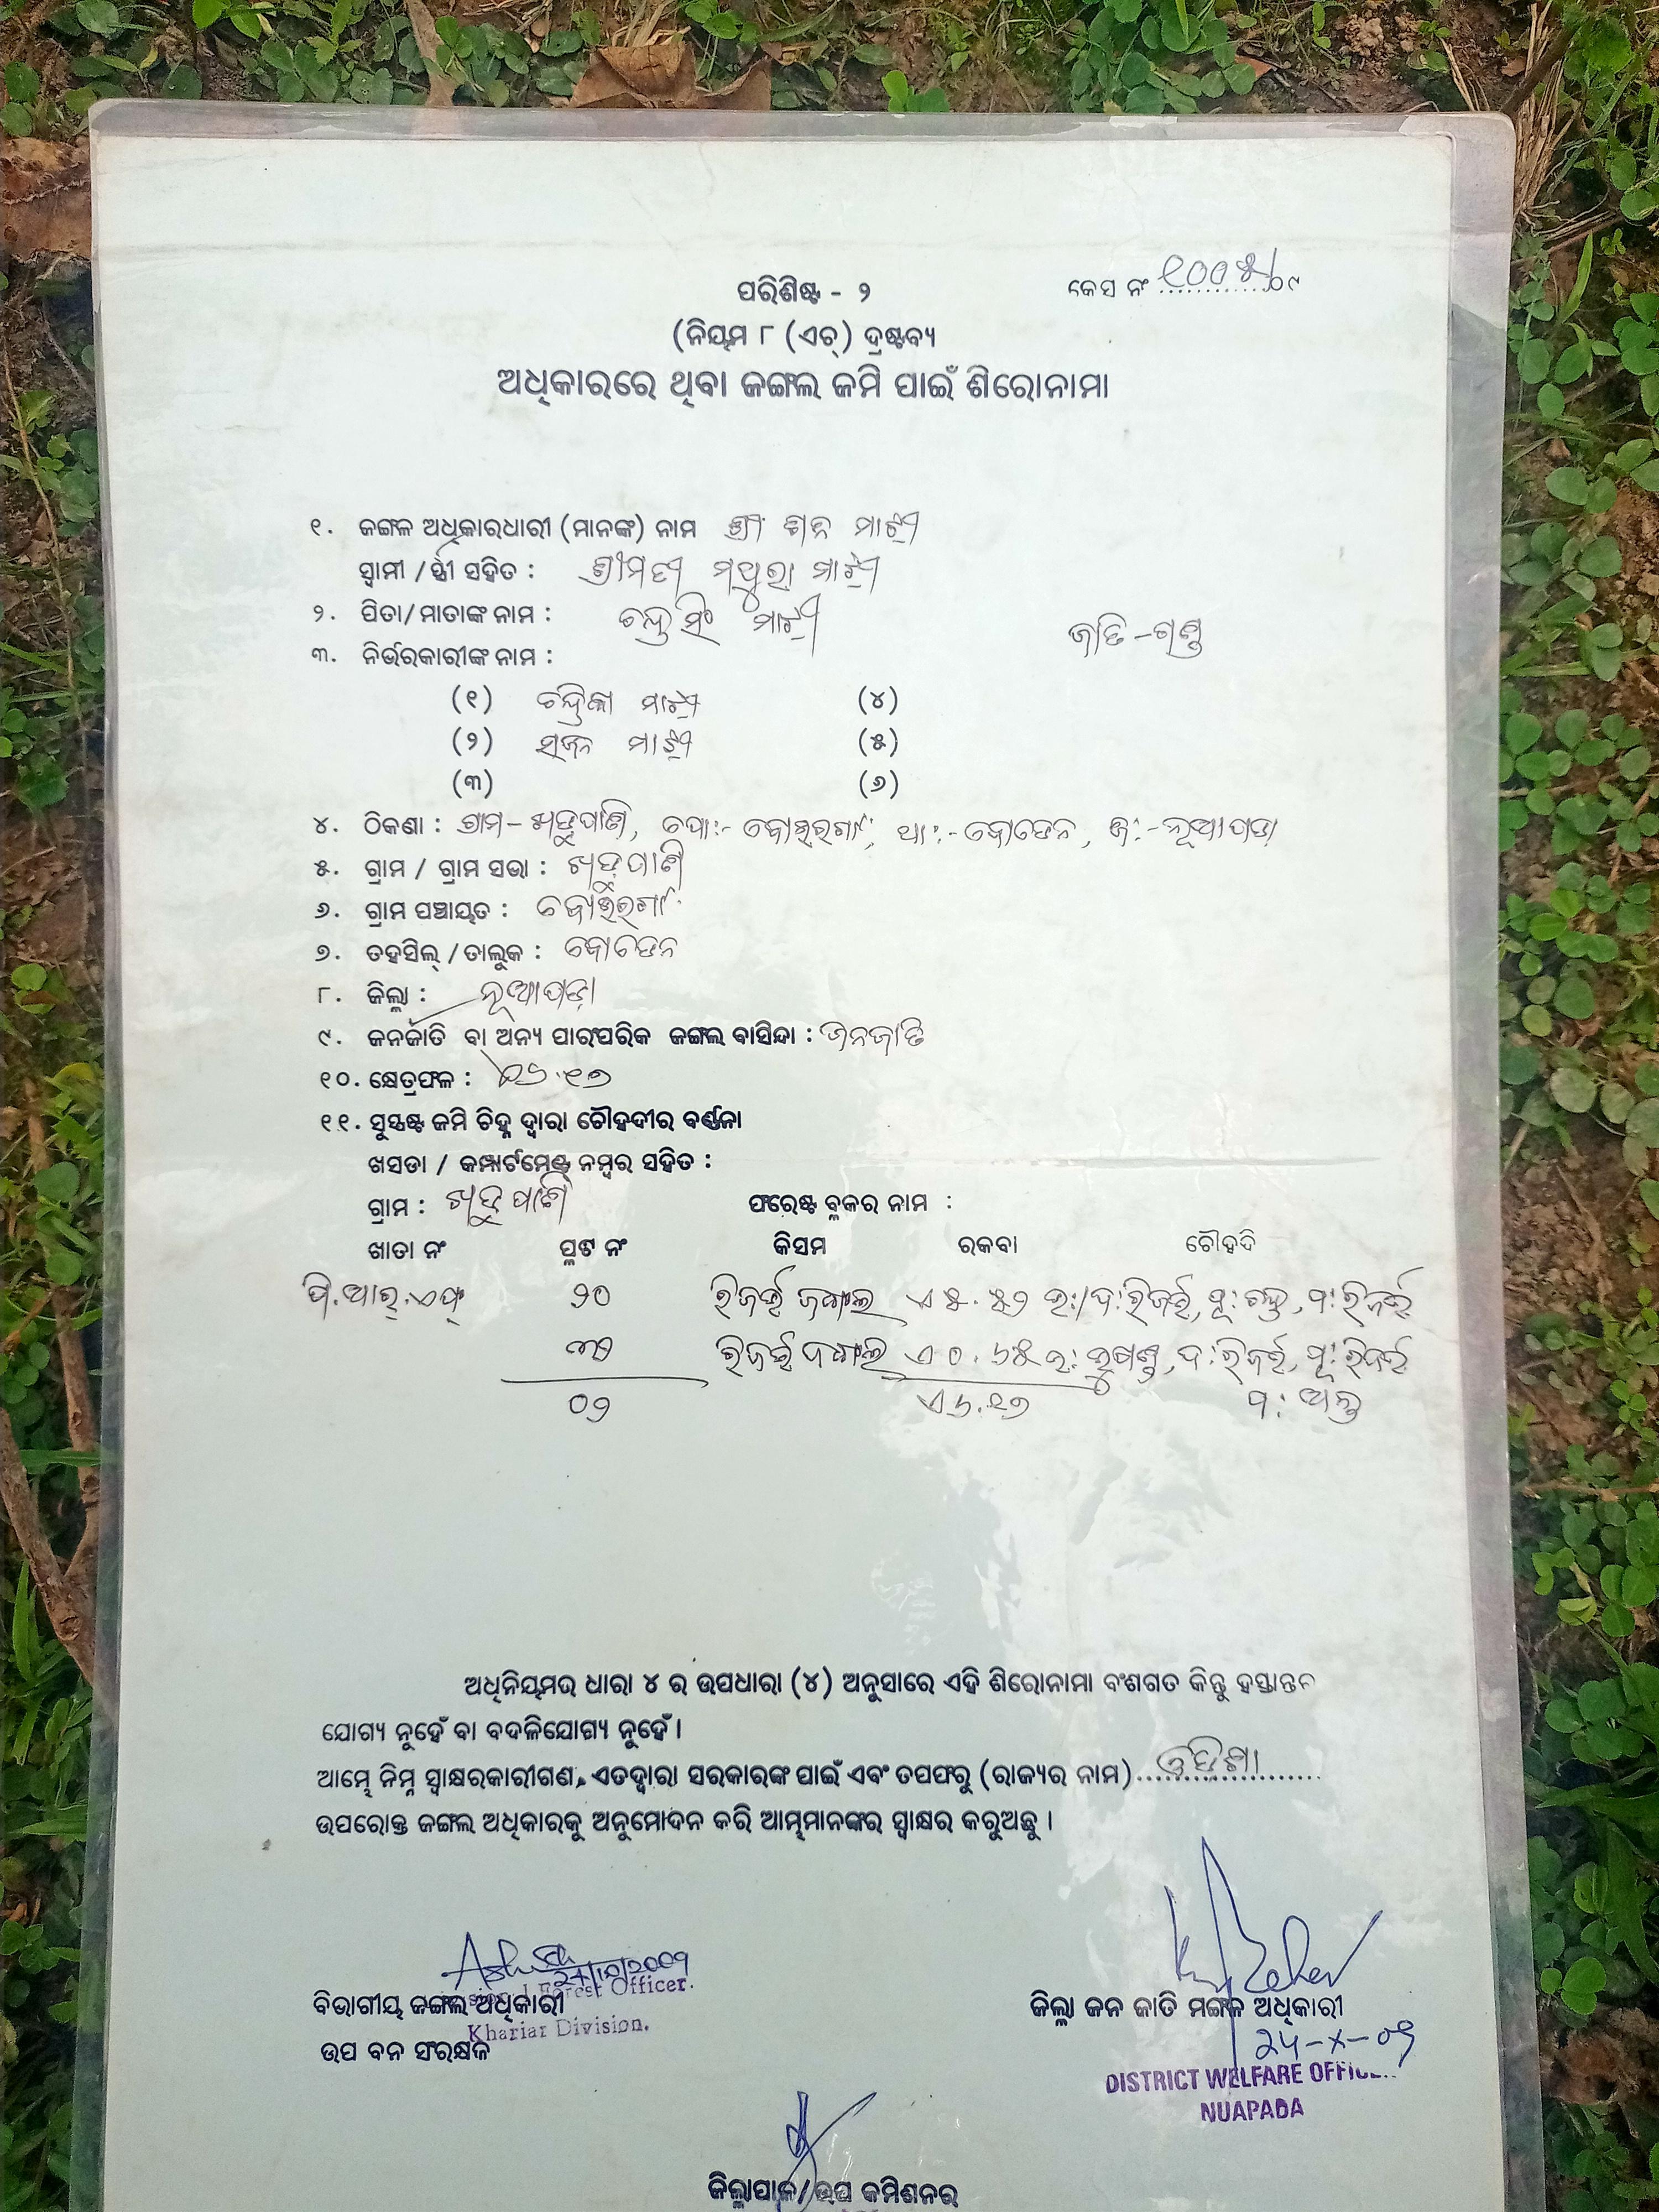 ପରିଶିଷ୍ଟ - ୨
କେସ ନଂ ୧୦୦୫/୦୯
(ନିୟମ ୮ (ଏଚ୍) ଦ୍ରଷ୍ଟବ୍ୟ
ଅଧିକାରରେ ଥିବା ଜଙ୍ଗଲ ଜମି ପାଇଁ ଶିରୋନାମା
୧. ଜଙ୍ଗଳ ଅଧିକାରଧାରୀ (ମାନଙ୍କ) ନାମ ଶ୍ରୀ ମାଝୀ
ସ୍ୱାମୀ / ସ୍ତ୍ରୀ ସହିତ : ଶ୍ରୀମତୀ ମଥୁରା ମାଝୀ
୨. ପିତା/ମାତାଙ୍କ ନାମ : ଚନ୍ଦ୍ର ସିଂ ମାଝୀ
ଜାତି - ଗଣ୍ଡ
୩. ନିର୍ଭରକାରୀଙ୍କ ନାମ :
(୧) ଚନ୍ଦ୍ରିକା ମାଝୀ (୪)
(୨) ସୃଜନ ମାଝୀ (୫)
(୩) (୬)
୪. ଠିକଣା : ଗ୍ରାମ - ଖଡୁପାଣି, ପୋ:- ଥା:- ବୋଡେନ, ଜି:- ନୂଆପଡା
୫. ଗ୍ରାମ / ଗ୍ରାମ ସଭା : ଖଡୁପାଣି
୬. ଗ୍ରାମ ପଞ୍ଚାୟତ :
୭. ତହସିଲ୍ / ତାଲୁକ : ବୋଡେନ
୮. ଜିଲ୍ଲା : ନୂଆପଡ଼ା
୯. ଜନଜାତି ବା ଅନ୍ୟ ପାରଂପରିକ ଜଙ୍ଗଲ ବାସିନ୍ଦା : ଜନଜାତି
୧୦. କ୍ଷେତ୍ରଫଳ : ୬.୧୭
୧୧. ସୁସ୍ପଷ୍ଟ ଜମି ଚିହ୍ନ ଦ୍ୱାରା ଚୌହଦୀର ବର୍ଣ୍ଣନା
ଖସଡା / କମ୍ପାର୍ଟମେଣ୍ଟ ନମ୍ବର ସହିତ :
ଗ୍ରାମ : ଖଡୁପାଣି ଫରେଷ୍ଟ ବ୍ଲକର ନାମ :
ଖାତା ନଂ ପ୍ଲଟ ନଂ କିସମ ରକବା ଚୌହଦି
ପି.ଆର୍.ଏଫ୍ ୨୦ ରିଜର୍ଭ ଜଙ୍ଗଲ ଏ ୫.୫୨ ଉ:/ଦ: ରିଜର୍ଭ, ପୂ: ପ: ରିଜର୍ଭ
ରିଜର୍ଭ ଜଙ୍ଗଲ ଏ ୦.୬୫ ଉ: ଦ: ରିଜର୍ଭ, ପୂ: ରିଜର୍ଭ
୦୨ ଏ ୬.୧୭ ପ:
ଅଧିନିୟମର ଧାରା ୪ ର ଉପଧାରା (୪) ଅନୁସାରେ ଏହି ଶିରୋନାମା ବଂଶଗତ କିନ୍ତୁ ହସ୍ତାନ୍ତର
ଯୋଗ୍ୟ ନୁହେଁ ବା ବଦଳିଯୋଗ୍ୟ ନୁହେଁ ।
ଆମ୍ଭେ ନିମ୍ନ ସ୍ୱାକ୍ଷରକାରୀଗଣ, ଏତଦ୍ୱାରା ସରକାରଙ୍କ ପାଇଁ ଏବଂ ତପଫରୁ (ରାଜ୍ୟର ନାମ) ଓଡ଼ିଶା
ଉପରୋକ୍ତ ଜଙ୍ଗଲ ଅଧିକାରକୁ ଅନୁମୋଦନ କରି ଆମ୍ଭମାନଙ୍କର ସ୍ୱାକ୍ଷର କରୁଅଛୁ ।
24/10/2009
Forest Officer.
ବିଭାଗୀୟ ଜଙ୍ଗଲ ଅଧିକାରୀ
Khariar Division.
ଉପ ବନ ସଂରକ୍ଷକ
ଜିଲ୍ଲା ଜନ ଜାତି ମଙ୍ଗଳ ଅଧିକାରୀ
24-X-09
DISTRICT WELFARE
NUAPADA
ଜିଲ୍ଲାପାଳ/ଉପ କମିଶନର